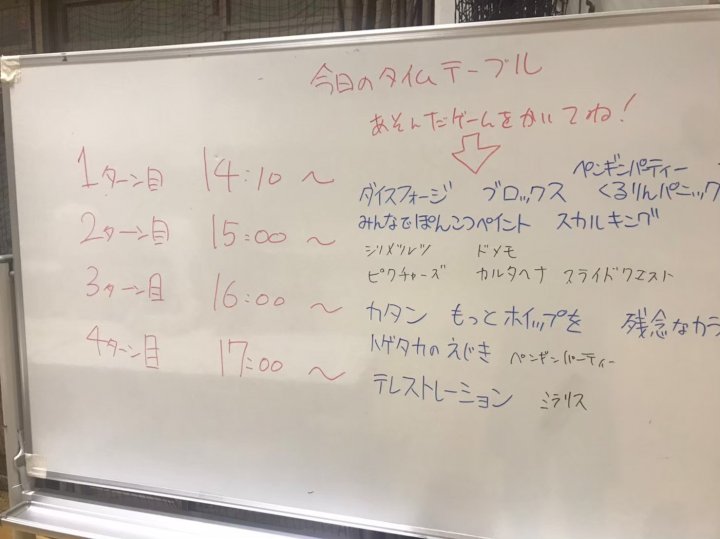 今日のタイムテーブル
あそんだゲームをかいてね!
1ターン目 14:10 〜
2ターン目 15:00 〜
3ターン目 16:00 〜
4ターン目 17:00 〜
ペンギンパティー
ダイスフォージ ブロックス くるりんパニック
みんなでぽんこつペイント スカルキング
ジリメツレツ ドメモ
ピクチャーズ カルタヘナ スライドクエスト
カタン もっとホイップを 残念なカラ
ハゲタカのえじき ペンギンパーティー
テレストレーション ミラリス